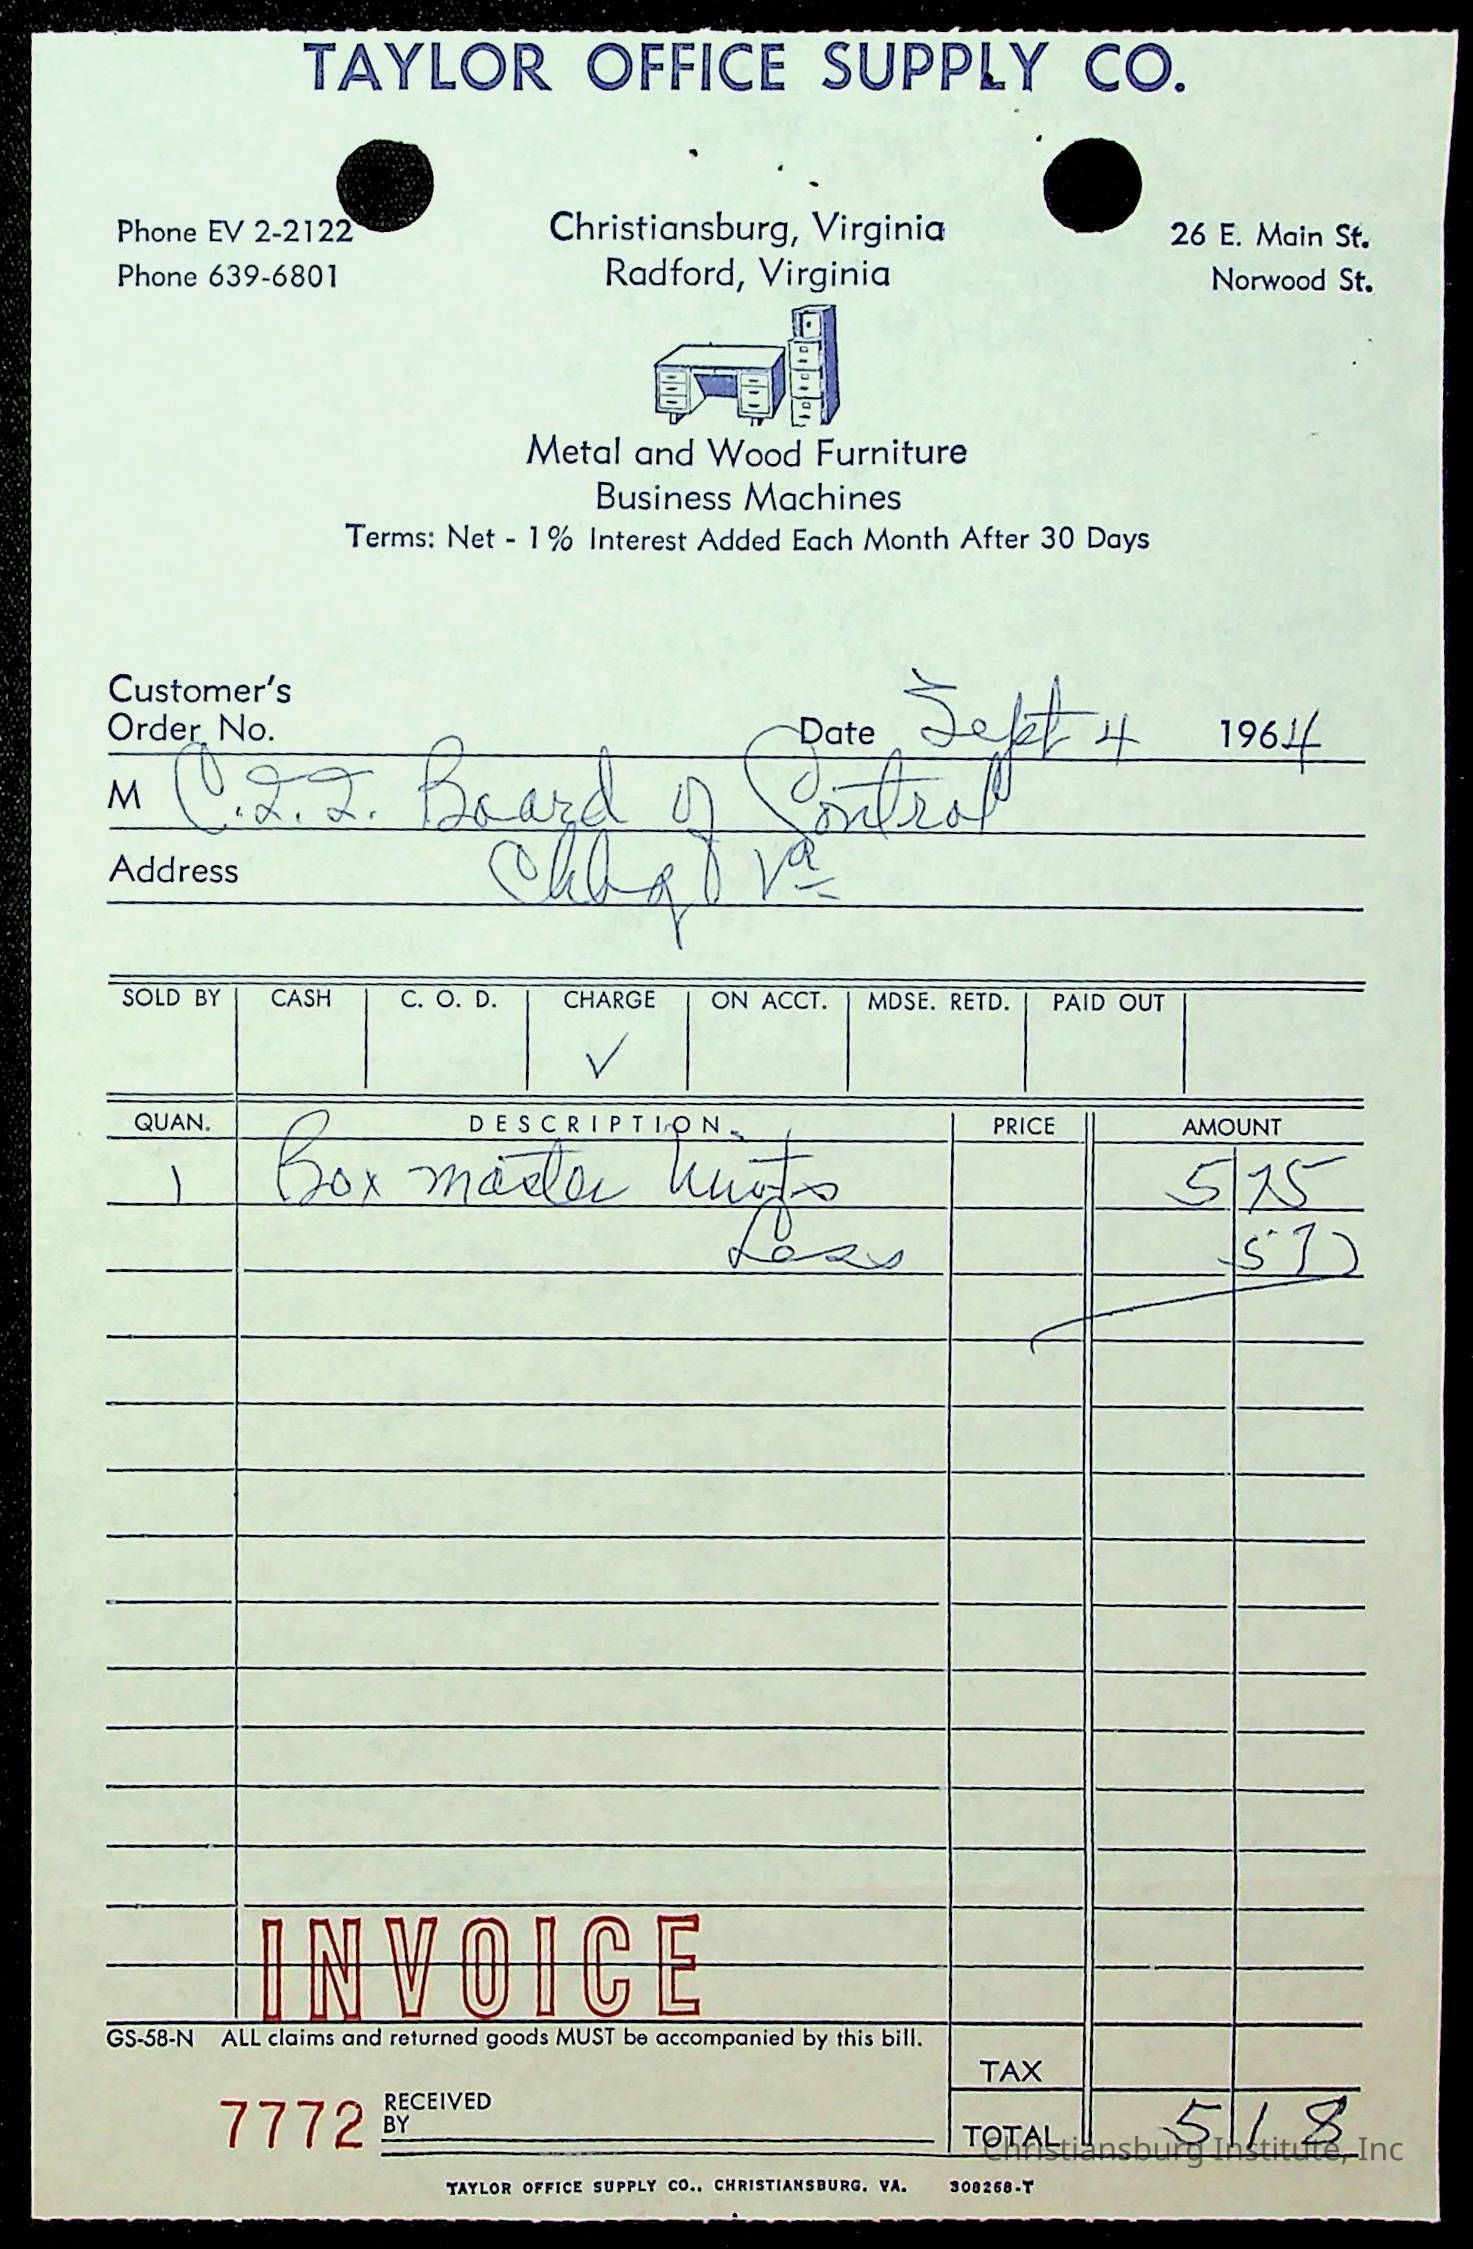 TAYLOR OFFICE SUPPLY CO.
Phone EV 2-2122 Christiansburg, Virginia 26 E. Main St.
Phone 639-6801 Radford, Virginia Norwood St.
Metal and Wood Furniture
Business Machines
Terms: Net - 1% Interest Added Each Month After 30 Days
Customer's
Order No. Date Sept 4 1964
M C.I.I. Board of Control
Address Chbg Va
SOLD BY CASH C. O. D. CHARGE ON ACCT. MDSE. RETD. PAID OUT
✓
QUAN. DESCRIPTION PRICE AMOUNT
1 Box master Units 5 75
Less 57
INVOICE
GS-58-N ALL claims and returned goods MUST be accompanied by this bill.
TAX
7772 RECEIVED BY
TOTAL 5 18
Christiansburg Institute, Inc
TAYLOR OFFICE SUPPLY CO., CHRISTIANSBURG, VA. 308268-T